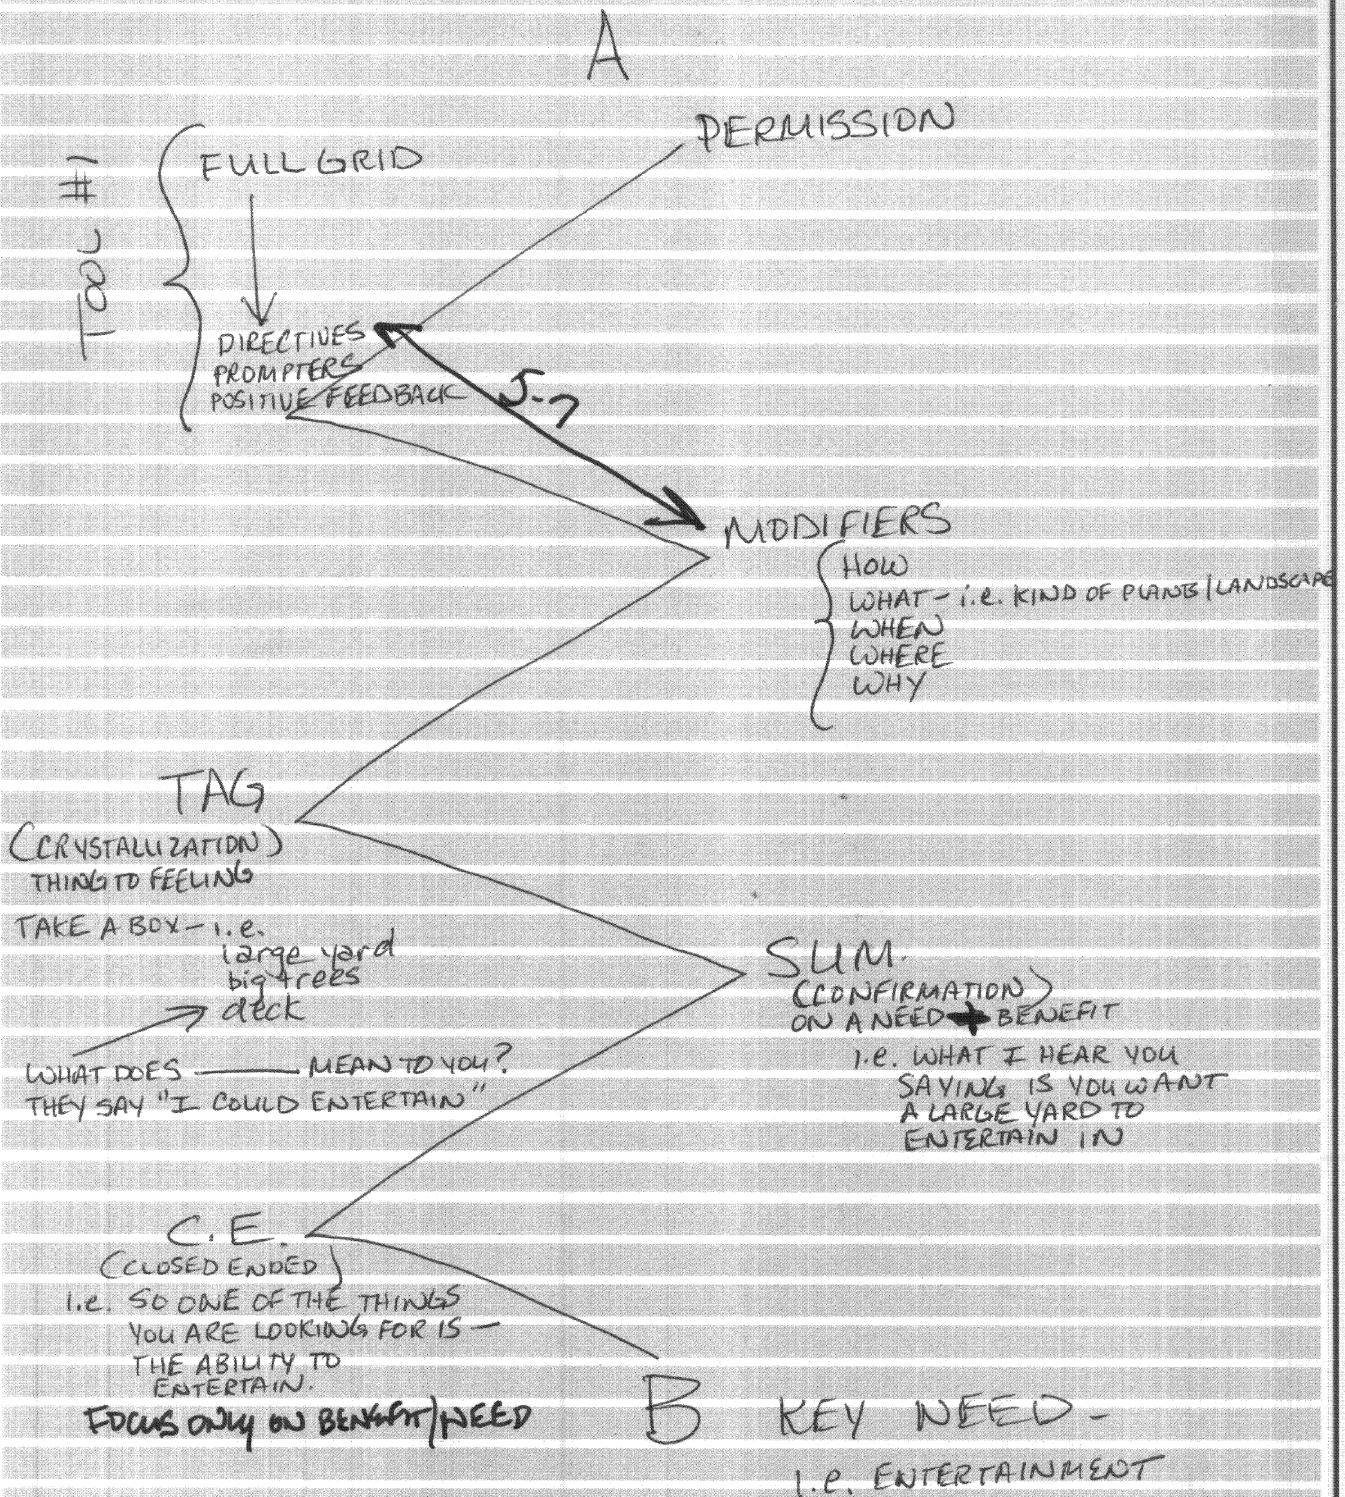 A
PERMISSION
TOOL #1
FULL GRID
DIRECTIVES
PROMPTERS
POSITIVE FEEDBACK
5-7
MODIFIERS
HOW
WHAT - i.e. KIND OF PLANTS/LANDSCAPE
WHEN
WHERE
WHY
TAG
(CRYSTALLIZATION)
THING TO FEELING
TAKE A BOX - i.e.
large yard
big trees
deck
WHAT DOES ——— MEAN TO YOU?
THEY SAY "I COULD ENTERTAIN"
SUM.
(CONFIRMATION)
ON A NEED + BENEFIT
i.e. WHAT I HEAR YOU
SAYING IS YOU WANT
A LARGE YARD TO
ENTERTAIN IN
C.E.
(CLOSED ENDED)
i.e. SO ONE OF THE THINGS
YOU ARE LOOKING FOR IS —
THE ABILITY TO
ENTERTAIN.
FOCUS ONLY ON BENEFIT/NEED
B KEY NEED -
i.e. ENTERTAINMENT